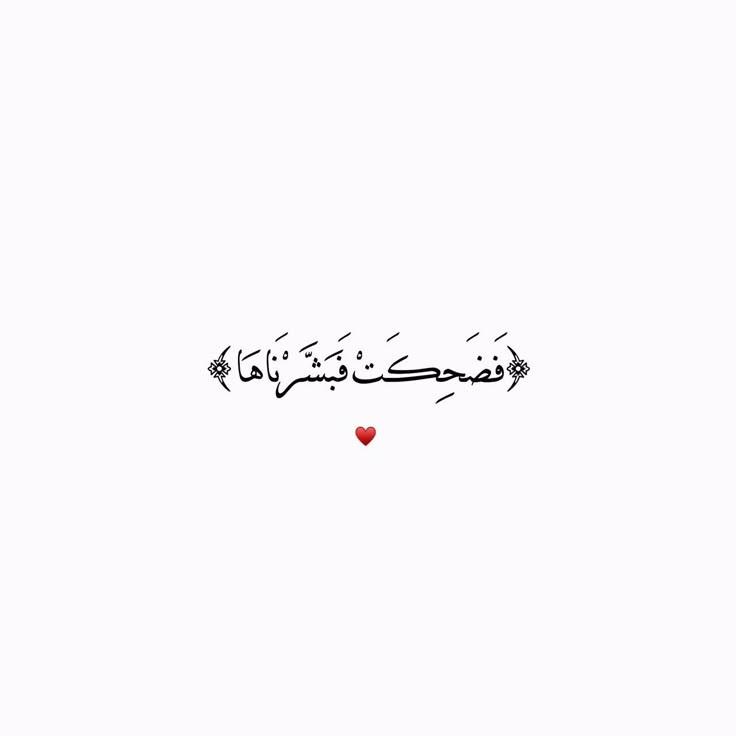 ﴿فَضَحِكَتْ فَبَشَّرْنَاهَا﴾
♥️